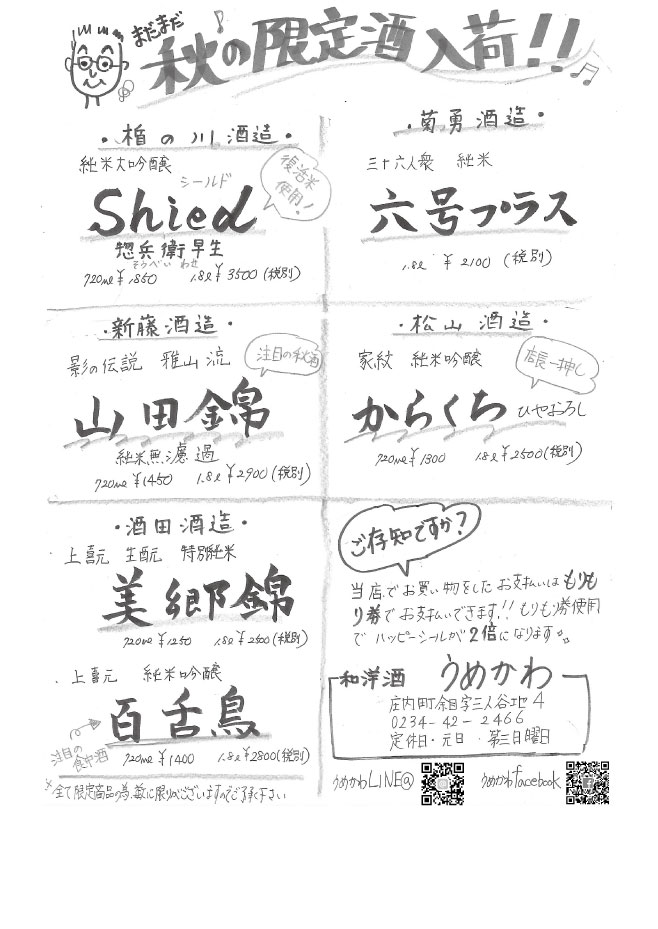 まだまだ
秋の限定酒入荷!!
・楯の川酒造・
純米大吟醸
復活米使用!
シールド
Shied
惣兵衛早生
そうべい わせ
720ml ¥1850 1.8ℓ ¥3500(税別)
・菊勇酒造・
三十六人衆 純米
六号プラス
1.8ℓ ¥2100 (税別)
・新藤酒造・
影の伝説 雅山流
注目の秋酒
山田錦
純米無濾過
720ml ¥1450 1.8ℓ ¥2900(税別)
・松山酒造・
家紋 純米吟醸
店長一押し
からくち ひやおろし
720ml ¥1300 1.8ℓ ¥2500(税別)
・酒田酒造・
上喜元 生酛 特別純米
美郷錦
720ml ¥1250 1.8ℓ ¥2500(税別)
・上喜元 純米吟醸
百舌鳥
注目の食中酒
720ml ¥1400 1.8ℓ ¥2800(税別)
※全て限定商品の為、数に限りがございますのでご了承下さい
ご存知ですか?
当店でお買い物をしたお支払いはもりも
り券でお支払いできます!! もりもり券使用
で ハッピーシールが2倍になります。
和洋酒 うめかわ
庄内町余目字三人谷地4
0234-42-2466
定休日・元日・第三日曜日
うめかわLINE@
うめかわfacebook